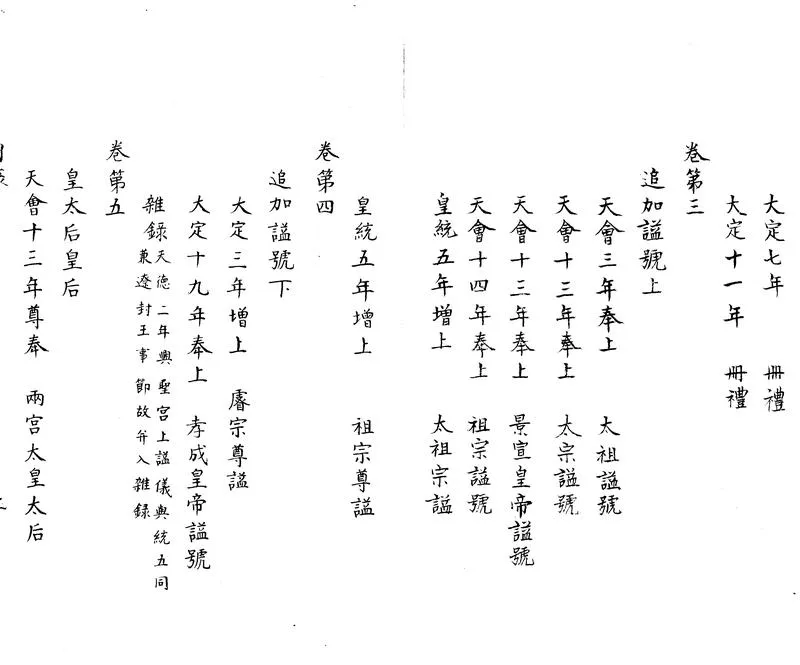 大定七年 冊禮
大定十一年 冊禮
卷第三
追加謚號上
天會三年奉上 太祖謚號
天會十三年奉上 太宗謚號
天會十三年奉上 景宣皇帝謚號
天會十四年奉上 祖宗謚號
皇統五年增上 太祖宗謚
皇統五年增上 祖宗尊謚
卷第四
追加謚號下
大定三年增上 睿宗尊謚
大定十九年奉上 孝成皇帝謚號
雜錄
天德二年興聖宮上謚儀與統五同
兼遼封王事節故并入雜録
卷第五
皇太后皇后
天會十三年尊奉 兩宮太皇太后